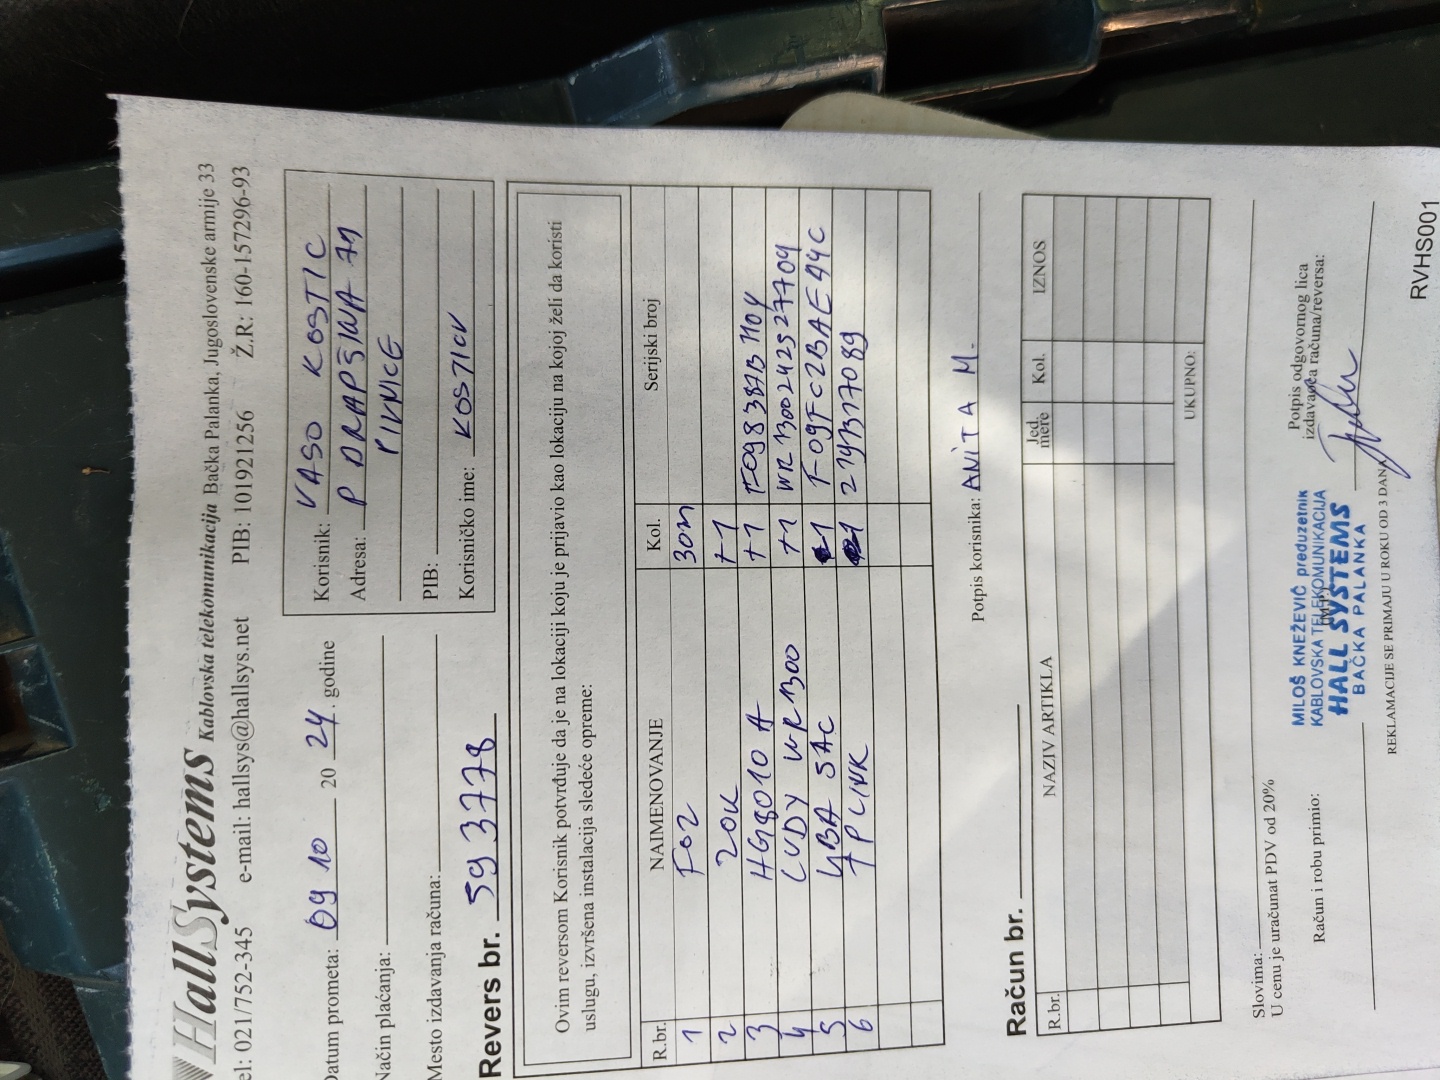 HallSystems Kablovska telekomunikacija Bačka Palanka, Jugoslovenske armije 33
el: 021/752-345 e-mail: hallsys@hallsys.net PIB: 101921256 Ž.R: 160-157296-93
Datum prometa: 09 10 20 24. godine
Način plaćanja:
Mesto izdavanja računa:
Korisnik: VASO KOSTIC
Adresa: P DRAPŠINA 71
PIVNICE
PIB:
Korisničko ime: KOSTICV
Revers br. 593778
Ovim reversom Korisnik potvrđuje da je na lokaciji koju je prijavio kao lokaciju na kojoj želi da koristi
uslugu, izvršena instalacija sledeće opreme:
R.br. NAIMENOVANJE Kol. Serijski broj
1 FO2 30m
2 ZOK +1
3 HG8010 H +1
4 CUDY WR1300 +1 WR1300242527709
5 LBA 5AC -1 F09FC2BAE44C
6 TPLINK -1
Potpis korisnika: ANITA M.
Račun br.
R.br. NAZIV ARTIKLA Jed. mere Kol. IZNOS
UKUPNO:
Slovima:
U cenu je uračunat PDV od 20%
Račun i robu primio:
MILOŠ KNEŽEVIĆ preduzetnik
KABLOVSKA TELEKOMUNIKACIJA
HALL SYSTEMS
BAČKA PALANKA
Potpis odgovornog lica
izdavaoca računa/reversa:
REKLAMACIJE SE PRIMAJU U ROKU OD 3 DANA
RVHS001